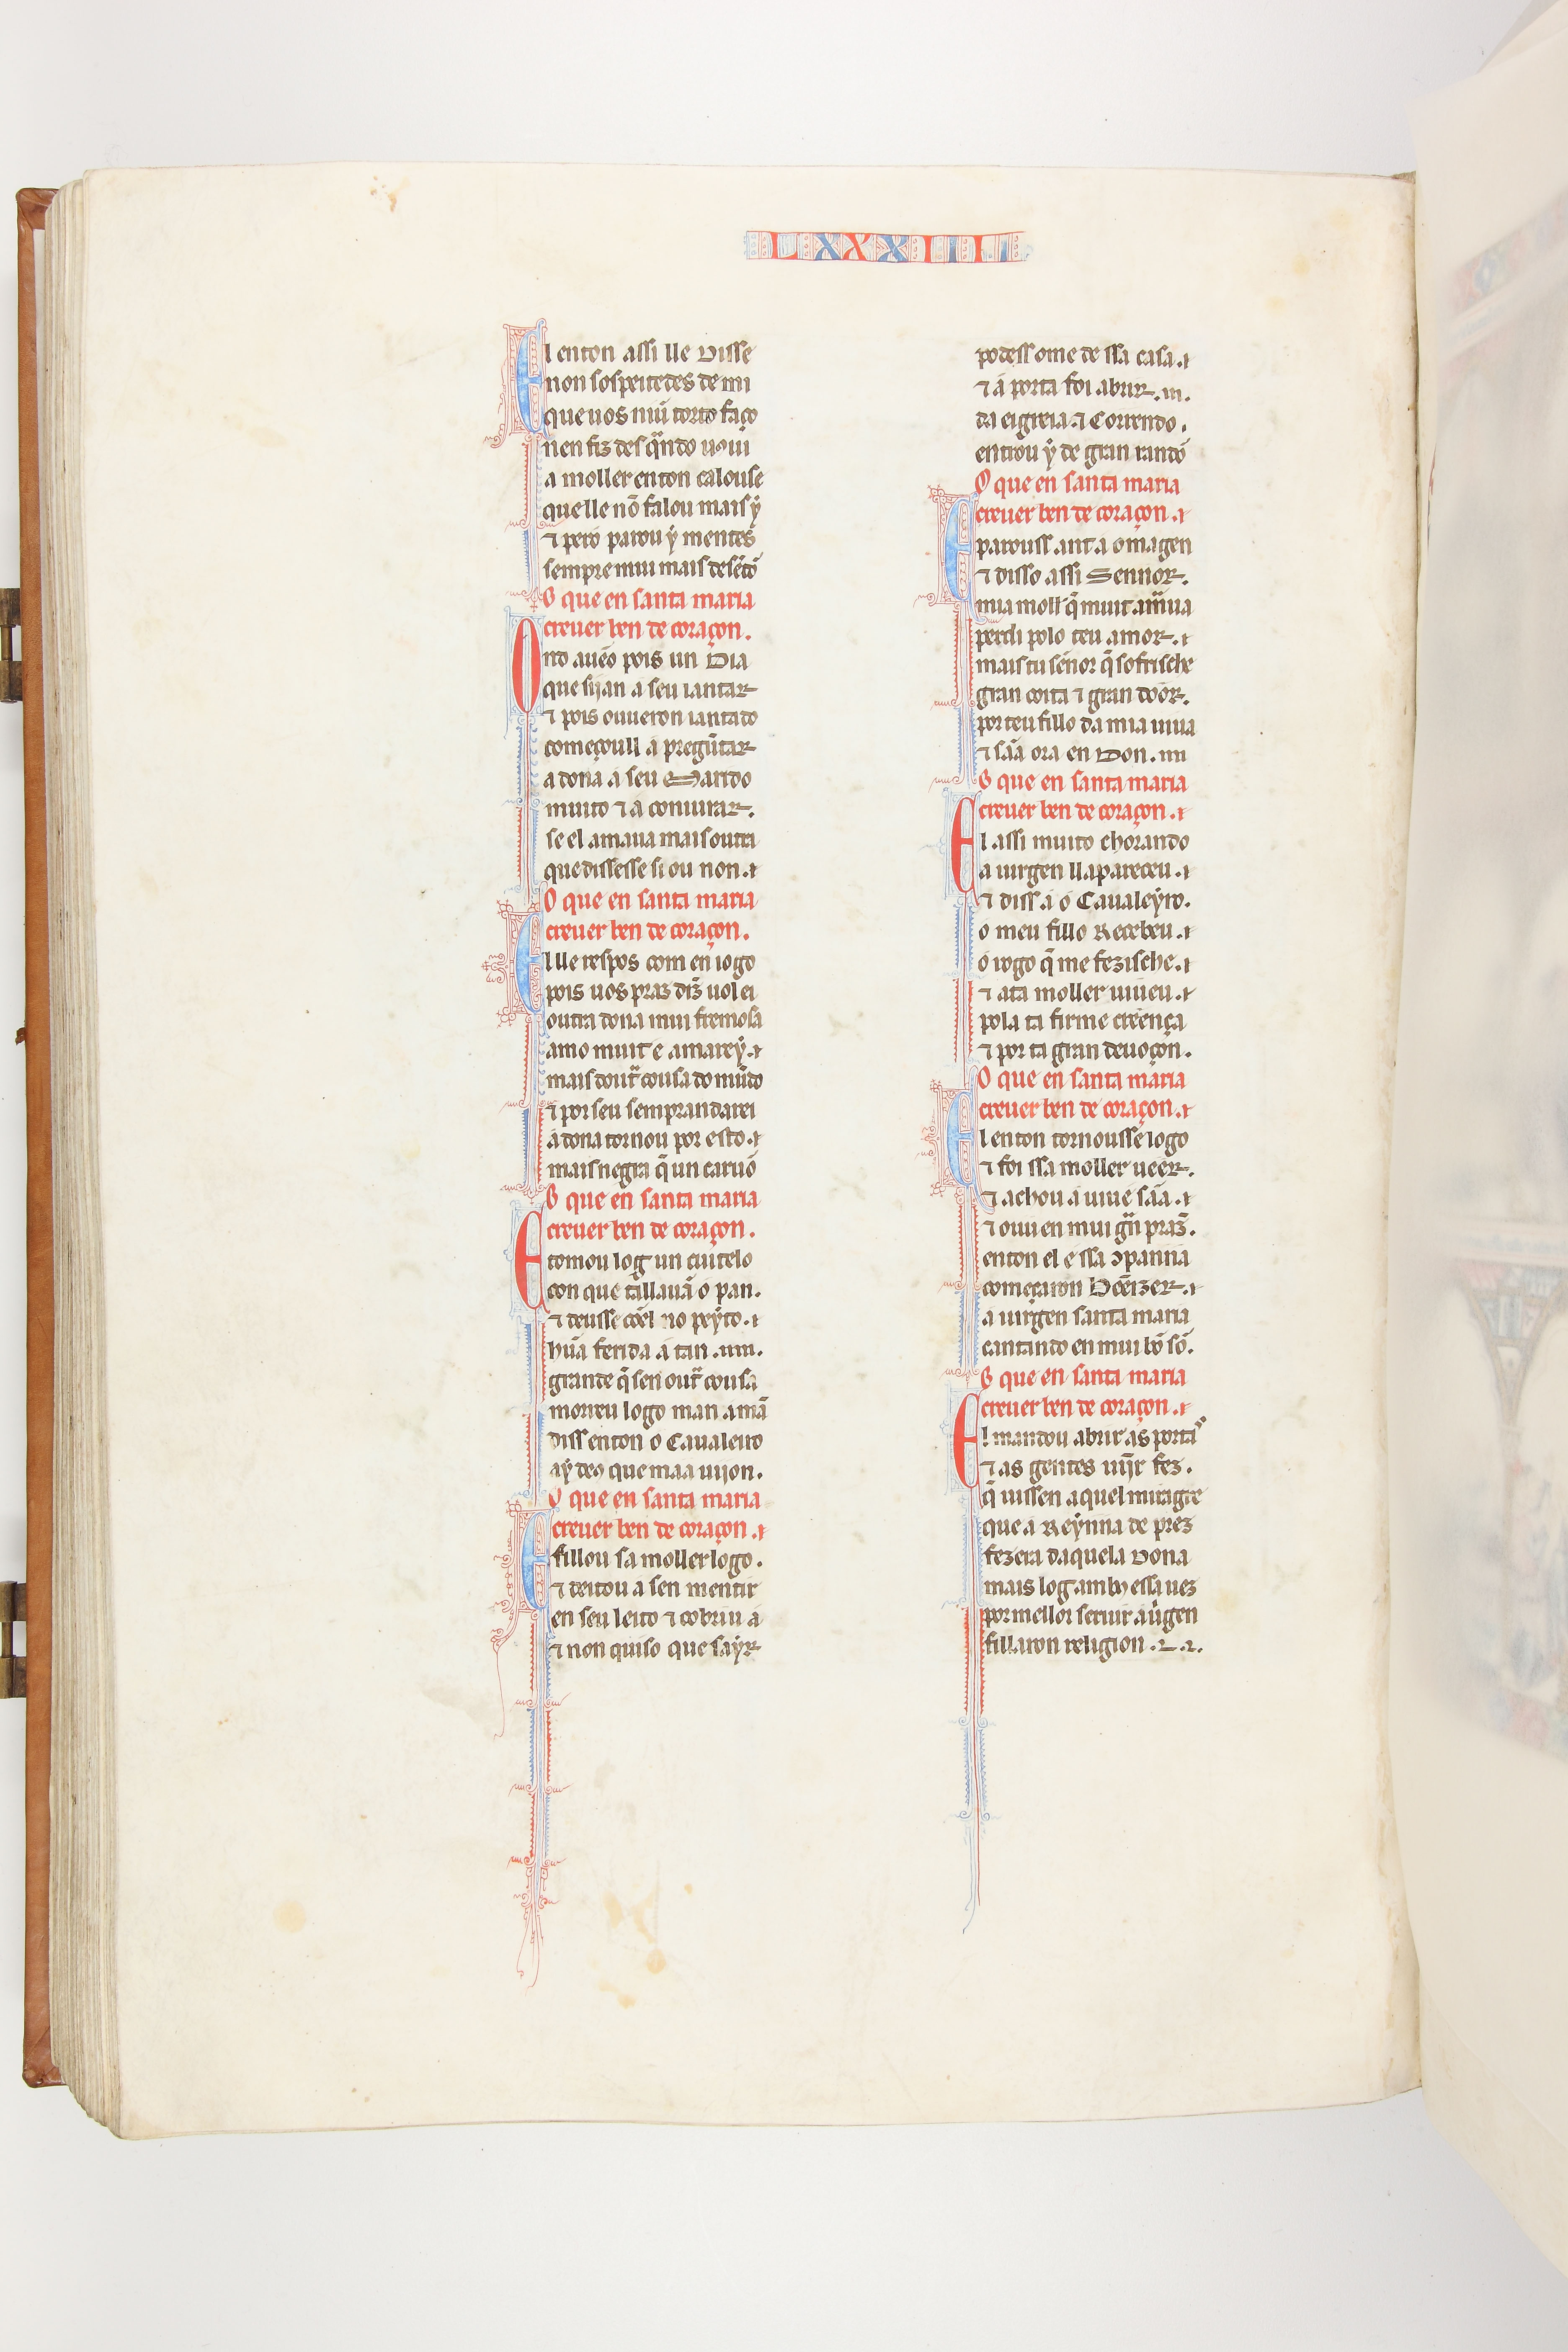 LXXXIIII
El enton assi lle disse
non sospeitedes de mi
que uos niũ torto faço
nen fiz des q̃ndo uous
a moller enton calousse
que lle nõ falou mais ẏ
⁊ pero parou ẏ mentes
sempre mui mais desẽtõ
O que en santa maria
creuer ben de coraçon.
Ond auẽo pois un dia
que sijan a seu iantar
⁊ pois ouueron iantado
começoull a pregũtar
a dona a seu Marido
muito ⁊ a coniurar.
se el amaua mais outra
que dissesse si ou non.
O que en santa maria
creuer ben de coraçon.
El lle respos com en iogo
pois uos praz diz̃ uolei
outra dona mui fremosa
amo muit e amareẏ.
mais dout̃ cousa do mũdo
⁊ por seu sempr andarei
a dona tornou por esto.
mais negra q̃ un caruõ
O que en santa maria
creuer ben de coraçon.
E tomou log un cuitelo
con que tallauã o pan.
⁊ deusse cõel no peẏto.
hũa ferida a tan
grande q̃ sen out̃ cousa
morreu logo man a mã
diss enton o Caualeiro
aẏ deꝰ que maa uijon.
O que en santa maria
creuer ben de coraçon.
E fillou sa moller logo.
⁊ deitou a sen mentir
en seu leito ⁊ cobriu a
⁊ non quiso que saẏr
podess ome de ssa casa.
⁊ a porta foi abrir.
da eigreia ⁊ Correndo.
entrou ẏ de gran randõ
O que en santa maria
creuer ben de coraçon.
E parouss ant a omagen
⁊ disso assi Sennor.
mia moll̃ q̃ muit amaua
perdi polo teu amor.
mais tu sẽnor q̃ sofrische
gran coita ⁊ gran door.
por teu fillo da mia uiua
⁊ sãa ora en Don.
O que en santa maria
creuer ben de coraçon.
El assi muito chorando
a uirgen ll apareceu.
⁊ diss a o Caualeẏro.
o meu fillo Recebeu.
o rogo q̃ me fezische.
⁊ a ta moller uiueu.
pola ta firme creença
⁊ por ta gran deuoçon.
O que en santa maria
creuer ben de coraçon.
El enton tornousse logo
⁊ foi ssa moller ueer.
⁊ achou a uiu e sãa.
⁊ ouu en mui gñ praz̃.
enton el e ssa ꝯpanna
começaron Bẽeizer.
a uirgen santa maria
cantando en mui bõ sõ.
O que en santa maria
creuer ben de coraçon.
El mandou abrir as portas
⁊ as gentes uijr fez.
q̃ uissen aquel miragre
que a Reẏnna de prez
fezera daquela Dona
mais log ambꝰ essa uez
por mellor seruir a uirgen
fillaron religion.